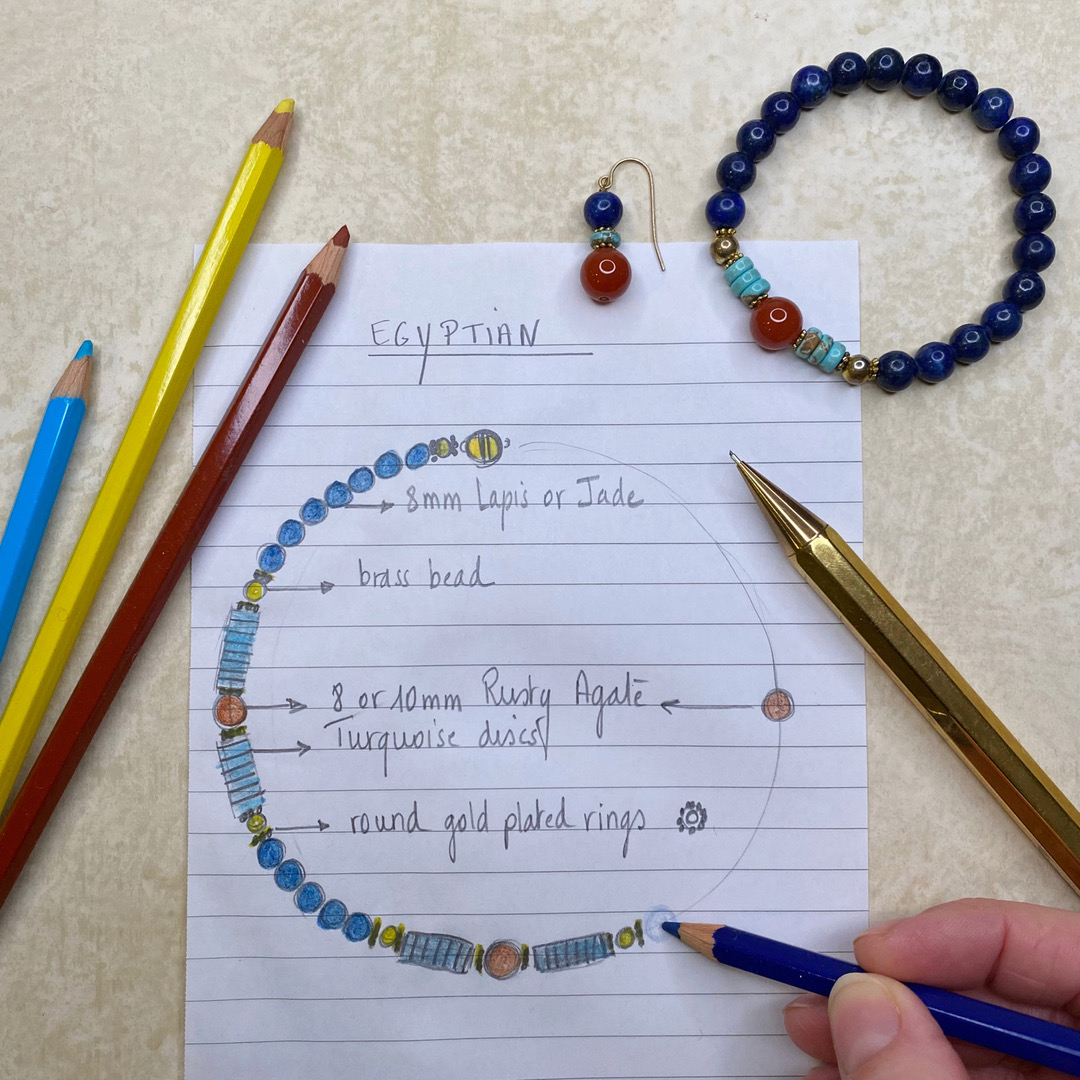 EGYPTIAN
8mm Lapis or Jade
brass bead
8 or 10mm Rusty Agate
Turquoise discs
round gold plated rings